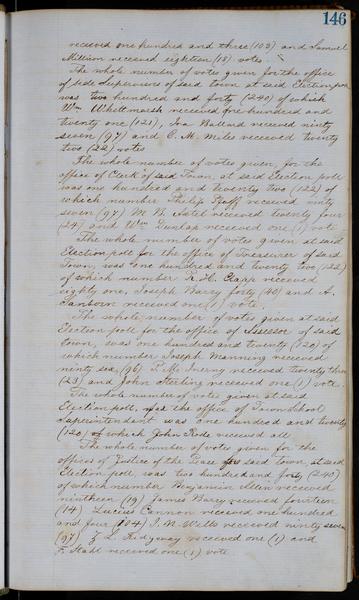 146
received one hundred and three (103) and Samuel
Million received eighteen (18) votes.
The whole number of votes given for the office
of side Supervisors of said town at said Election poll
was two hundred and forty (240) of which
Wm Whittmarsh received one hundred and
twenty one (121), Ira Ballard received ninety
seven (97) and C. M. Miles received twenty
two (22) votes
The whole number of votes given, for the
office of Clerk of said Town, at said Election poll
was one hundred and twenty two (122) of
which number Philip Pfaff received ninty
seven (97) M. B. received twenty four
(24) and Wm Dunlap received one (1) vote
The whole number of votes given at said
Election poll for the office of Treasurer of said
Town, was one hundred and twenty two (122)
of which number R. H. Rapp received
eighty one, Joseph Barry forty (40) and A.
Sanborn received one (1) vote.
The whole number of votes given at said
Election poll for the office of Assessor of said
town, was one hundred and twenty (120) of
which number Joseph Manning received
ninty six (96) received twenty three
(23) and John Sterling received one (1) vote.
The whole number of votes given at said
Election poll, for the office of Town School
Superintendent was one hundred and twenty
(120) of which John Rode received all
The whole number of votes given for the
offices of Justice of the Peace for said town at said
Election poll, was two hundred and forty (240)
of which number Benjamin Allen received
ninteen (19) James Barry received fourteen
(14) Lucius Cannon received one hundred
and four (104) J. N. Wells received ninty seven
(97) L. Ridgway received one (1) and
F. Stahl received one (1) vote